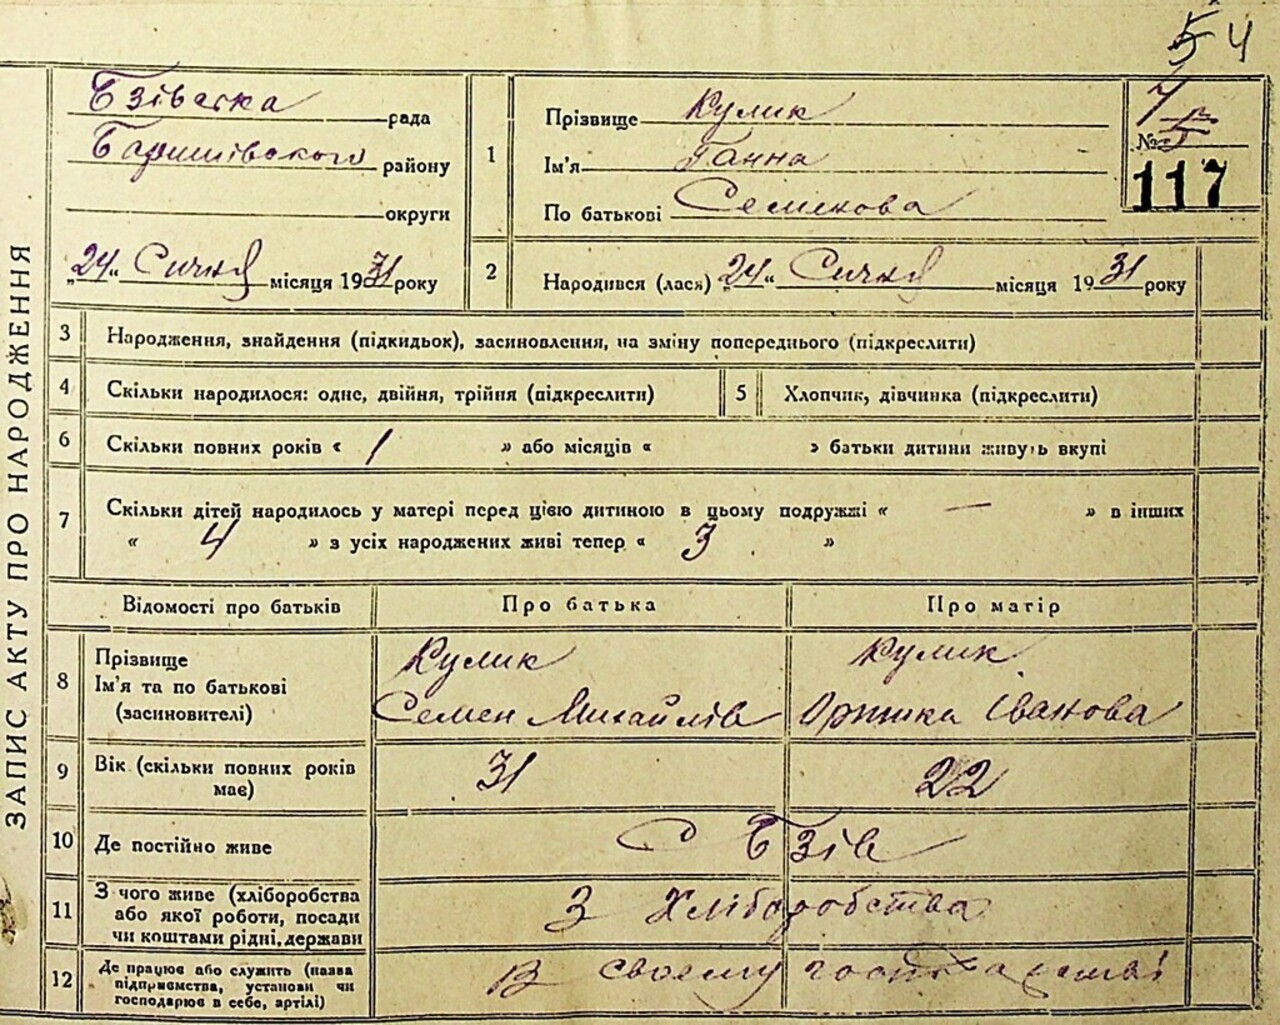 54
Бзівська рада
Баришівського району
округи
„24" Січня місяця 1931 року
1
Прізвище Кулик
Ім'я Ганна
По батькові Семенова
№ 5
117
2
Народився (лася) „24" Січня місяця 1931 року
ЗАПИС АКТУ ПРО НАРОДЖЕННЯ
3 Народження, знайдення (підкидьок), засиновлення, на зміну попереднього (підкреслити)
4 Скільки народилося: одне, двійня, трійня (підкреслити)
5 Хлопчик, дівчинка (підкреслити)
6 Скільки повних років « 1 » або місяців « » батьки дитини живуть вкупі
7 Скільки дітей народилось у матері перед цією дитиною в цьому подружжі « — » в інших
« 4 » з усіх народжених живі тепер « 3 »
Відомості про батьків Про батька Про матір
8 Прізвище
Ім'я та по батькові
(засиновителі)
Кулик
Семен Михайлів
Кулик
Оришка Іванова
9 Вік (скільки повних років
має)
31 22
10 Де постійно живе С Бзів
11 З чого живе (хліборобства
або якої роботи, посади
чи коштами рідні, держави
З Хліборобства
12 Де працює або служить (назва
підприємства, установи чи
господарює в себе, артілі)
В своему